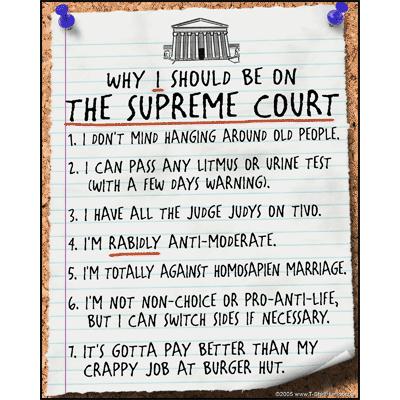 WHY I SHOULD BE ON
THE SUPREME COURT
1. I DON'T MIND HANGING AROUND OLD PEOPLE.
2. I CAN PASS ANY LITMUS OR URINE TEST
(WITH A FEW DAYS WARNING).
3. I HAVE ALL THE JUDGE JUDYS ON TIVO.
4. I'M RABIDLY ANTI-MODERATE.
5. I'M TOTALLY AGAINST HOMOSAPIEN MARRIAGE.
6. I'M NOT NON-CHOICE OR PRO-ANTI-LIFE,
BUT I CAN SWITCH SIDES IF NECESSARY.
7. IT'S GOTTA PAY BETTER THAN MY
CRAPPY JOB AT BURGER HUT.
©2005